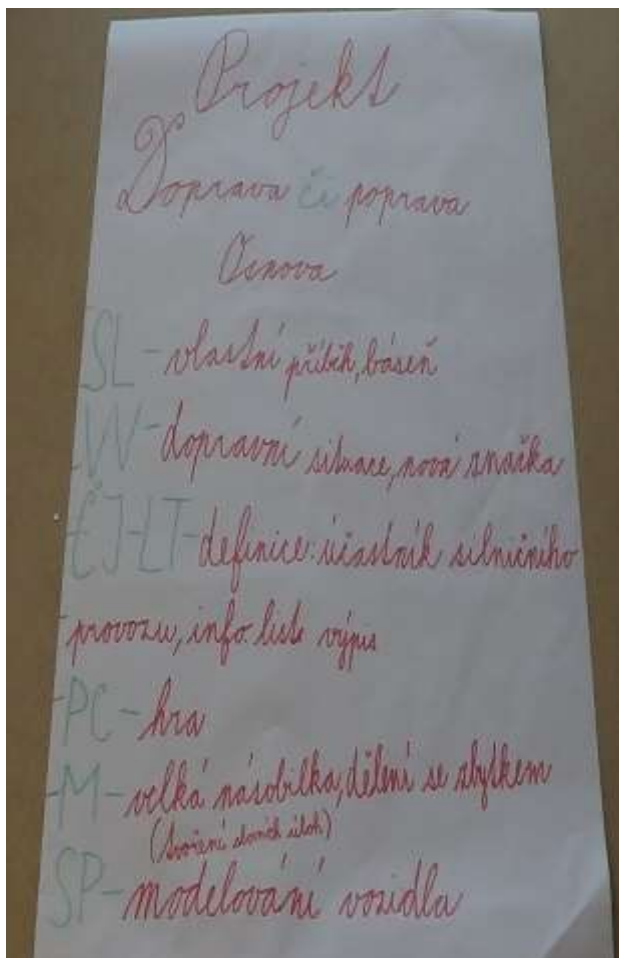 Projekt
Doprava či poprava
Osnova
-SL-vlastní příběh, báseň
-VV-dopravní situace, nová značka
-ČJ-LT-definice: účastník silničního
provozu, info. lists výpis
-PC-hra
-M-velká násobilka, dělení se zbytkem
(tvoření slovních úloh)
SP-modelování vozidla